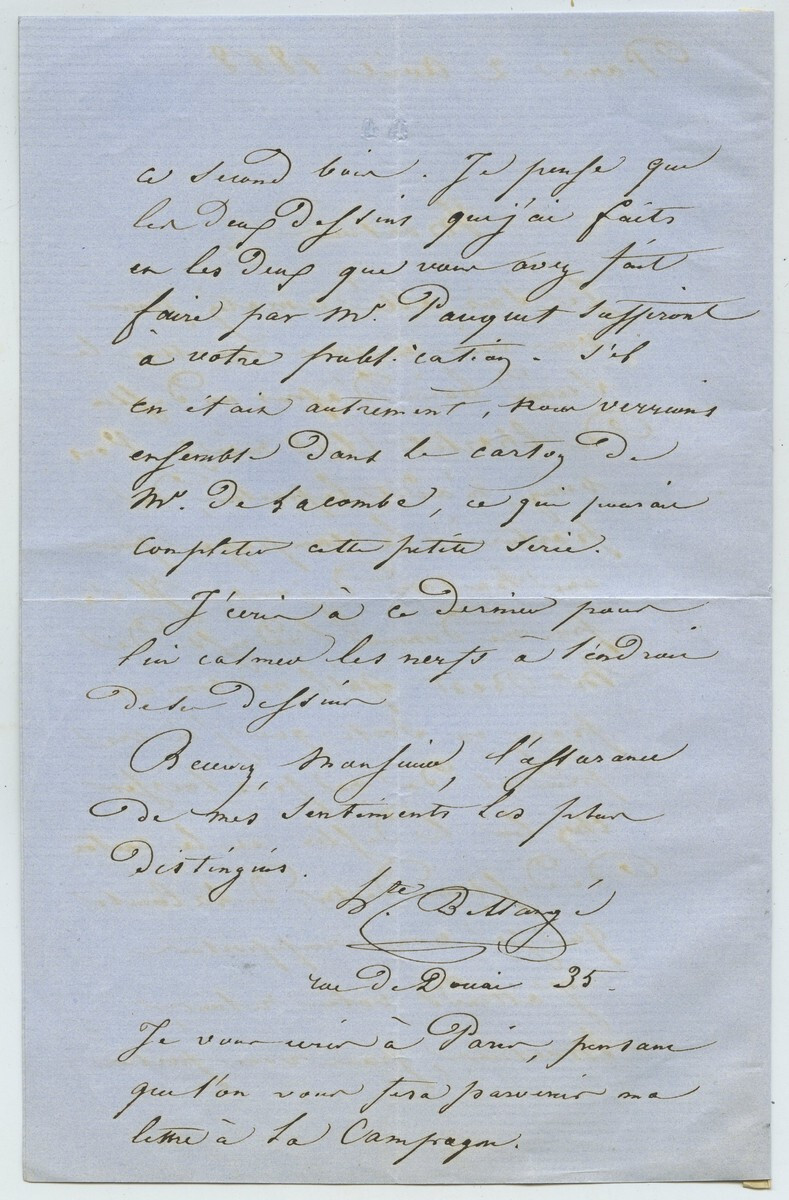 ce second bois. Je pense que
les deux dessins que j'ai faits
et les deux que vous avez fait
faire par Mr. Pauquet suffiront
à votre publication. S'il
en était autrement, nous verrions
ensemble dans le carton de
Mr. de Lacombe, ce qui pourait
completer cette petite serie.
J'ecris à ce dernier pour
lui calmer les nerfs à l'endroit
de ses dessins
Recevez, Monsieur, l'assurance
de mes sentiments les plus
distingués.
Hte. Bellangé
rue de Douai 35.
Je vous ecris à Paris, pensant
que l'on vous fera parvenir ma
lettre à la Campagne.